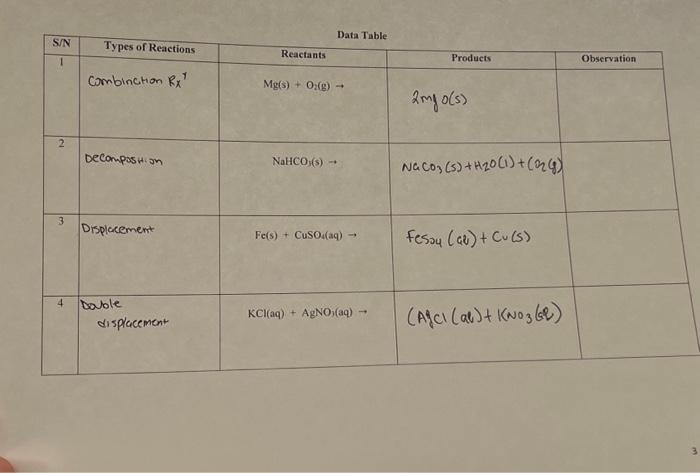 Data Table
S/N Types of Reactions Reactants Products Observation
1 Combination Rx^n Mg(s) + O₂(g) → 2mgO(s)
2 Decomposition NaHCO₃(s) → NaCO₃(s)+H2O(l)+CO2(g)
3 Displacement Fe(s) + CuSO₄(aq) → FeSO4(aq)+Cu(s)
4 Double
displacement KCl(aq) + AgNO₃(aq) → (AgCl(aq)+KNO3(aq)
3